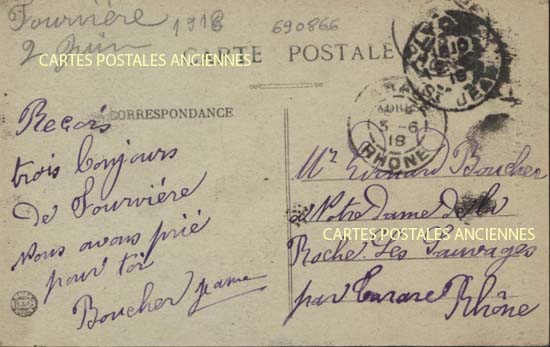 Fourvière 1918 690866
2 Juin
CARTE POSTALE
CARTES POSTALES ANCIENNES
CORRESPONDANCE
Reçois
trois bonjours
de Fourvière
nous avons prié
pour toi
Boucher Jeanne
ADRESSE
3-6
18
RHONE
Mr Edouard Boucher
à Notre Dame de la
CARTES POSTALES ANCIENNES
Roche Les Sauvages
par Tarare Rhône